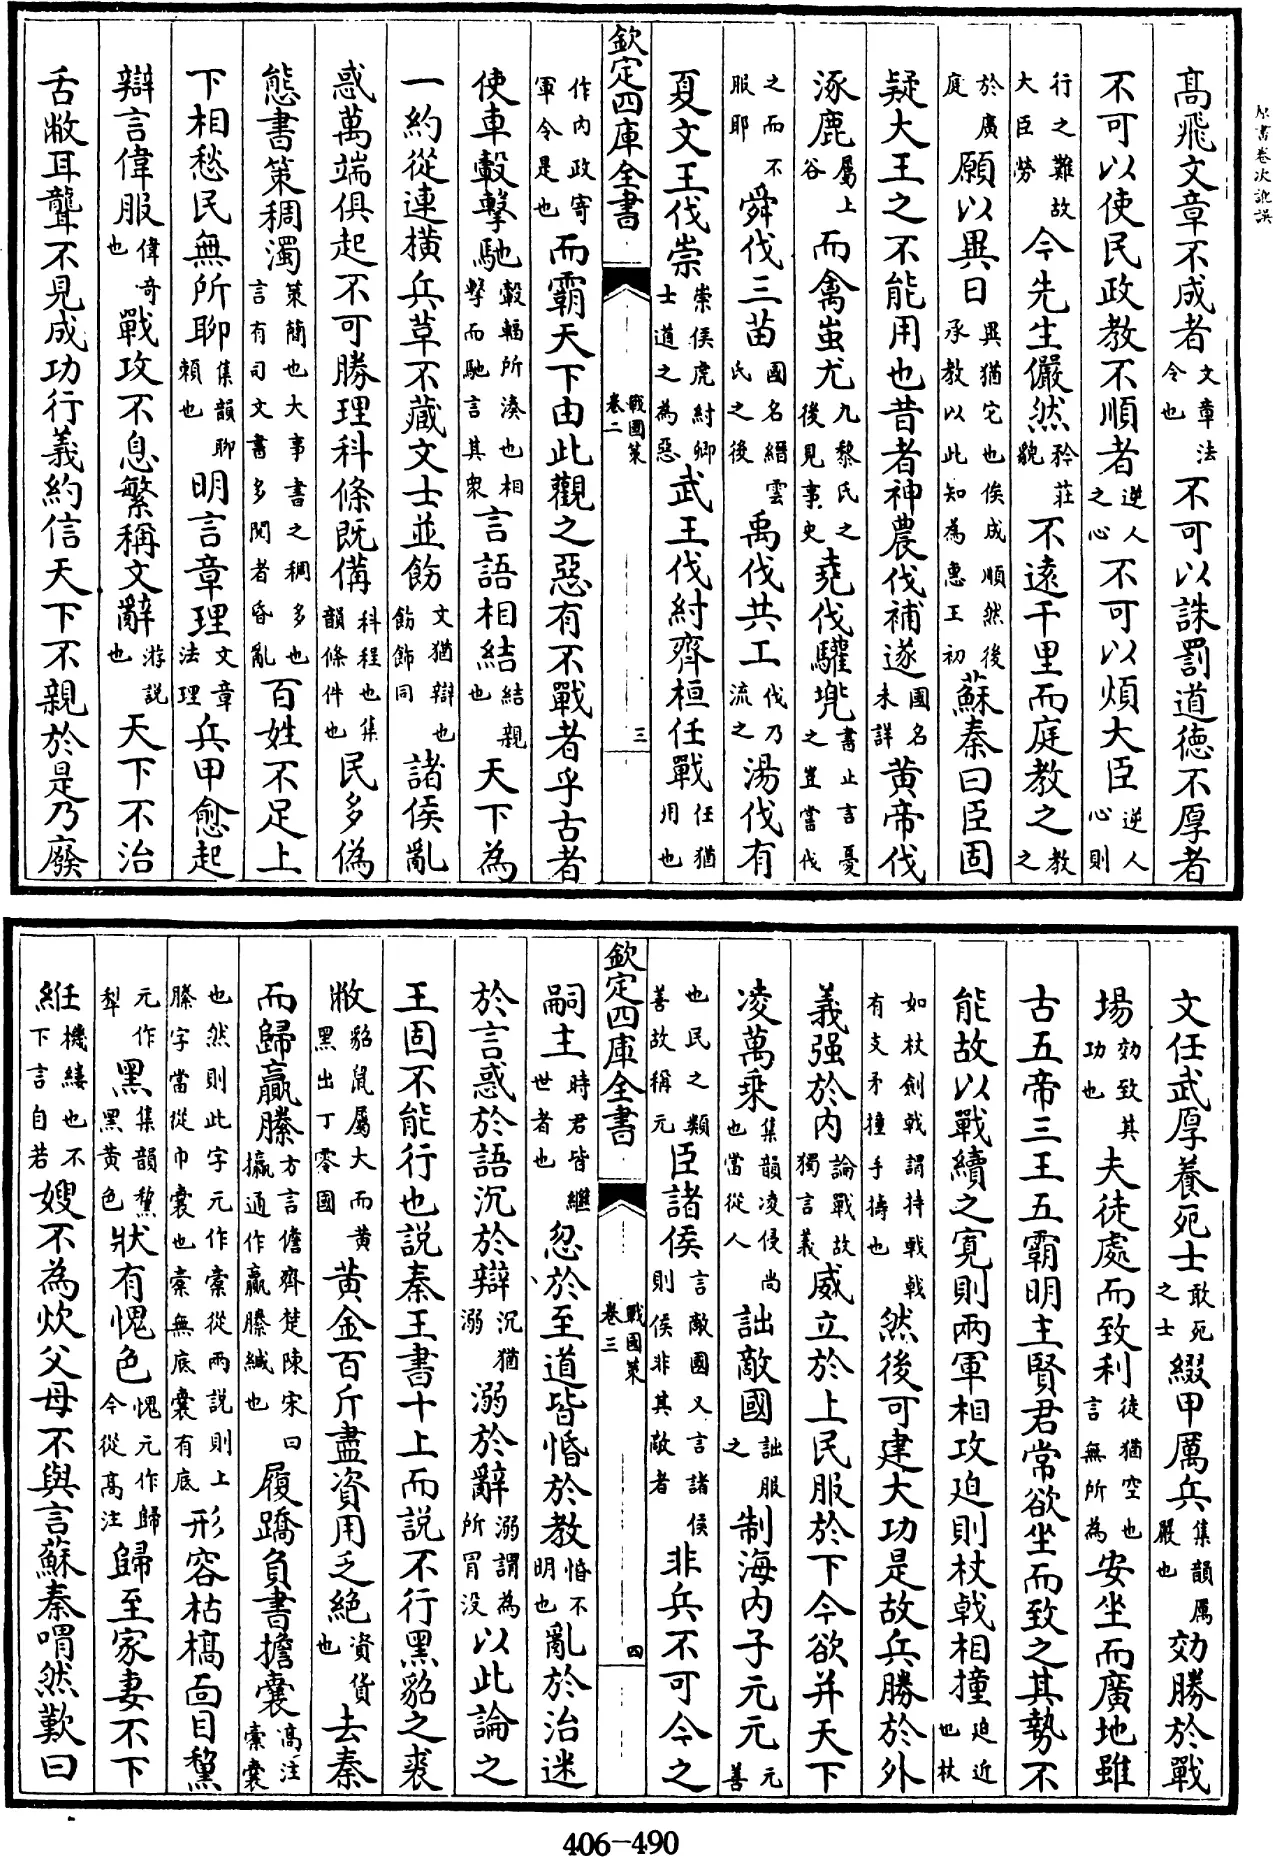 原書卷次訛誤
高飛文章不成者文章法令也不可以誅罰道德不厚者
不可以使民政教不順者逆人之心不可以煩大臣逆人心則
行之難故大臣勞今先生儼然矜莊貌不遠千里而庭教之教之
於廣庭願以異日異猶它也俟成順然後承教以此知為惠王初蘇秦曰臣固
疑大王之不能用也昔者神農伐補遂國名未詳黄帝伐
涿鹿屬上谷而禽蚩尤九黎氏之後見事史堯伐驩兜書止言憂之豈當伐
之而不服耶舜伐三苗國名縉雲氏之後禹伐共工伐乃流之湯伐有
夏文王伐崇崇侯虎紂卿士道之為惡武王伐紂齊桓任戰任猶用也
欽定四庫全書
戰國策
卷二
三
作内政寄軍令是也而霸天下由此觀之惡有不戰者乎古者
使車轂擊馳轂輻所湊也相擊而馳言其衆言語相結結親也天下為
一約從連橫兵革不藏文士並飭文猶辯也飭飾同諸侯亂
惑萬端俱起不可勝理科條既備科程也集韻條件也民多偽
態書策稠濁策簡也大事書之稠多也言有司文書多閱者昏亂百姓不足上
下相愁民無所聊集韻聊賴也明言章理文章法理兵甲愈起
辯言偉服偉奇也戰攻不息繁稱文辭游說也天下不治
舌敝耳聾不見成功行義約信天下不親於是乃廢
文任武厚養死士敢死之士綴甲厲兵集韻厲嚴也効勝於戰
場効致其功也夫徒處而致利徒猶空也言無所為安坐而廣地雖
古五帝三王五霸明主賢君常欲坐而致之其勢不
能故以戰續之寛則兩軍相攻迫則杖戟相撞迫近也杖
如杖劍戟謂持戟戟有支矛撞手擣也然後可建大功是故兵勝於外
義强於内論戰故獨言義威立於上民服於下今欲并天下
凌萬乘集韻凌侵尚也當從人詘敵國詘服之制海内子元元元善
也民之類善故稱元臣諸侯言敵國又言諸侯則侯非其敵者非兵不可今之
欽定四庫全書
戰國策
卷三
四
嗣主時君皆繼世者也忽於至道皆惛於教惛不明也亂於治迷
於言惑於語沉於辯沉猶溺溺於辭溺謂為所冐没以此論之
王固不能行也說秦王書十上而說不行黑貂之裘
敝貂鼠屬大而黄黑出丁零國黄金百斤盡資用乏絶資貨也去秦
而歸羸縢方言儋齊楚陳宋曰攍通作羸縢緘也履蹻負書擔囊高注橐囊
也然則此字元作橐從兩說則上縢字當從巾囊也橐無底囊有底形容枯槁面目黧
元作犁黑集韻黧黑黄色狀有愧色愧元作歸今從高注歸至家妻不下
絍機縷也不下言自若嫂不為炊父母不與言蘇秦喟然歎曰
406-490